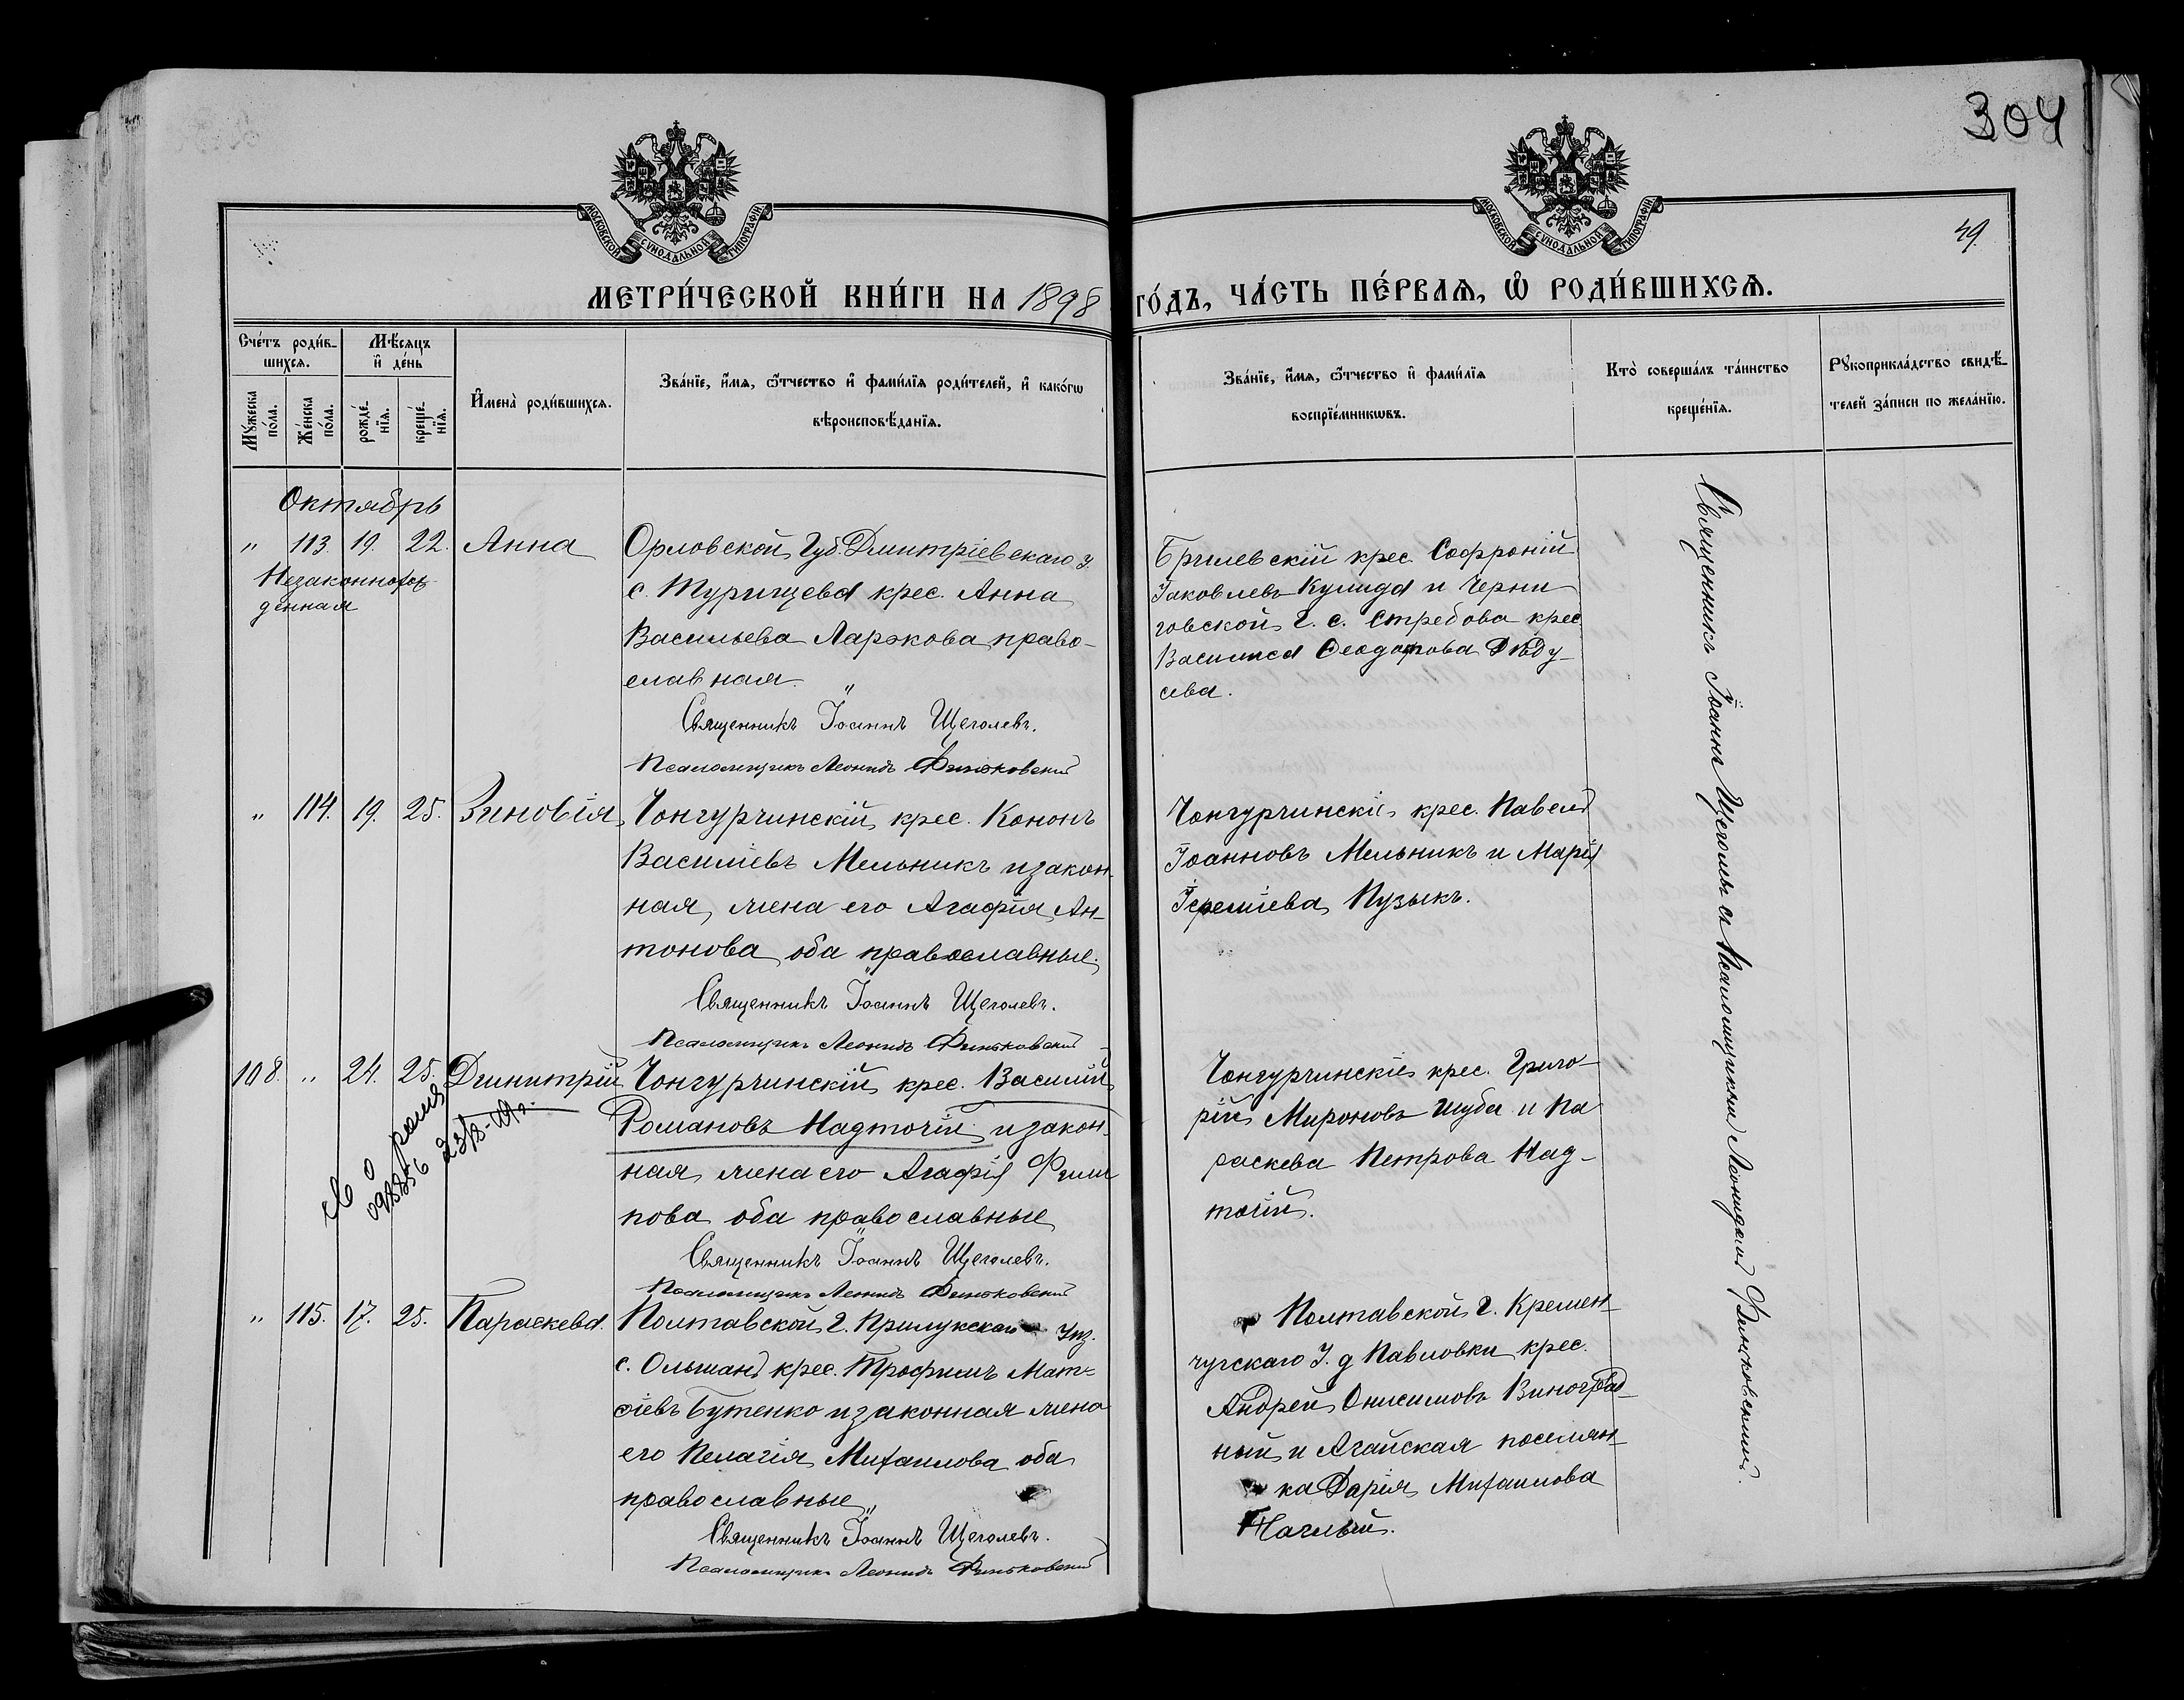 304
49.
МОСКОВСКОЙ СѴНОДАЛЬНОЙ ТИПОГРАФІИ
МОСКОВСКОЙ СѴНОДАЛЬНОЙ ТИПОГРАФІИ
МЕТРИ́ЧЕСКОЙ КНИ́ГИ НА 1898 ГО́ДЪ, ЧА́СТЬ ПЕ́РВАѦ, Ѡ҆ РОДИ́ВШИХСѦ.
Сче́тъ роди́в-
шихсѧ.
Мꙋ́жеска по́ла.
Же́нска по́ла.
Мѣ́сѧцъ
и҆ де́нь
рожде́-
нїѧ.
креще́-
нїѧ.
И҆мена̀ роди́вшихсѧ.
Зва́нїе, и҆́мѧ, ѻ҆́тчество и҆ фами́лїѧ роди́телей, и҆ како́гѡ
вѣроисповѣ́данїѧ.
Зва́нїе, и҆́мѧ, ѻ҆́тчество и҆ фами́лїѧ
воспрїе́мникѡвъ.
Кто̀ соверша́лъ та́инство
креще́нїѧ.
Рꙋкоприкла́дство свидѣ́-
телей за́писи по жела́нїю.
Октябрь
" 113. 19. 22. Анна
Незаконнорож-
денная
Орловской Губ. Дмитріевскаго у.
с. Турищева крес. Анна
Васильева Ларжкова право-
славная.
Священникъ Іоаннъ Щеголевъ.
Псаломщикъ Леонидъ Финьковскій
Бримевскій крес. Софроній
Іаковлевъ Кулида и Черни
говской г. с. Стребова крес
Василиса Ѳеодорова Дѣду-
сева.
" 114. 19. 25. Зиновія
Чонгурчинскій крес. Кононъ
Василіевъ Мельникъ и закон-
ная жена его Агафія Ан-
тонова оба православные.
Священникъ Іоаннъ Щеголевъ.
Псаломщикъ Леонидъ Финьковскій
Чонгурчинскіе крес. Павелъ
Іоанновъ Мельникъ и Марія
Іереміева Пузыкъ.
108. " 24. 25. Димитрій
Чонгурчинскій крес. Василій
Романовъ Надточій и закон-
ная жена его Агафія Филип
пова оба православные
Священникъ Іоаннъ Щеголевъ.
Псаломщикъ Леонидъ Финьковскій
Чонгурчинскіе крес. Григо-
рій Мироновъ Шуба и Па
раскева Петрова Над-
точій.
" 115. 17. 25. Параскева.
Полтавской г. Прилукскаго Уѣз.
с. Ольшана крес. Трофимъ Мат-
ѳіевъ Бутенко и законная жена
его Пелагія Михаилова оба
православные
Священникъ Іоаннъ Щеголевъ.
Псаломщикъ Леонидъ Финьковскій
Полтавской г. Кремен-
чугскаго У. д Павловки крес.
Андрей Онисимовъ Виноград-
ный и Агайская поселян-
ка Дарія Михаилова
Наглый.
Священникъ Іоаннъ Щеголевъ съ Псаломщикомъ Леонидомъ Финьковскимъ.